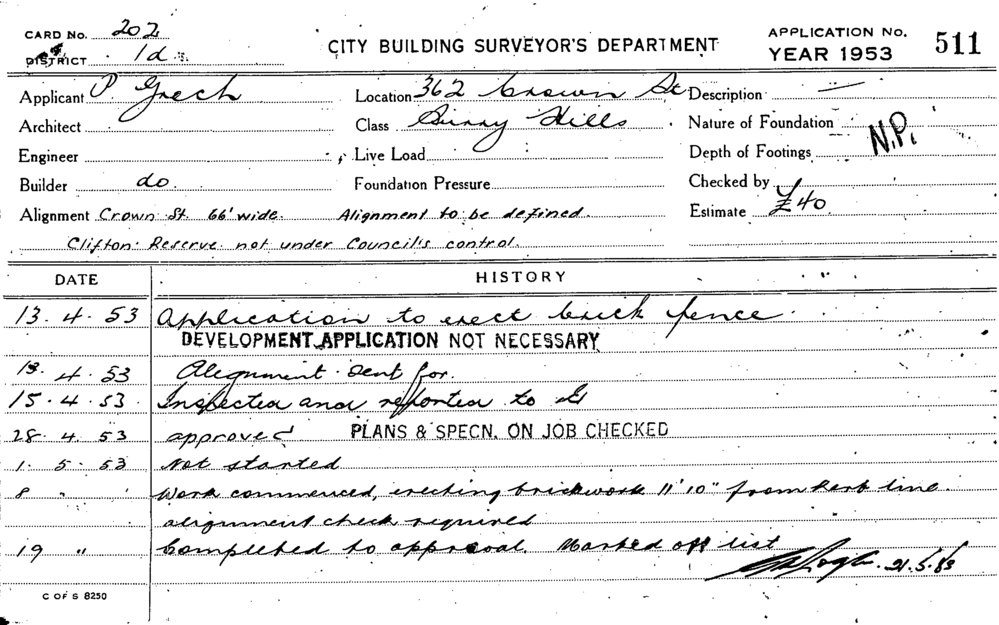 CARD No. 202
DISTRICT 1d
CITY BUILDING SURVEYOR'S DEPARTMENT
APPLICATION No. 511
YEAR 1953
Applicant P Grech
Location 362 Crown St
Description —
Architect
Class Surry Hills
Nature of Foundation N.P.
Engineer
Live Load
Depth of Footings
Builder do.
Foundation Pressure
Checked by
Alignment Crown St. 66' wide. Alignment to be defined.
Estimate £40
Clifton Reserve not under Council's control.
DATE HISTORY
13. 4. 53 Application to erect brick fence.
DEVELOPMENT APPLICATION NOT NECESSARY
13. 4. 53 Alignment sent for.
15. 4. 53. Inspected and reported to
28. 4. 53 approved PLANS & SPECN. ON JOB CHECKED
1. 5. 53 Not started
8 " " Work commenced, erecting brickwork 11'10" from kerb line.
alignment check required
19 " Completed to approval. Marked off list
21.5.53
C OF S 8250